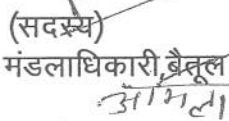 (सदस्य)
मंडलाधिकारी,बैतूल
आमला